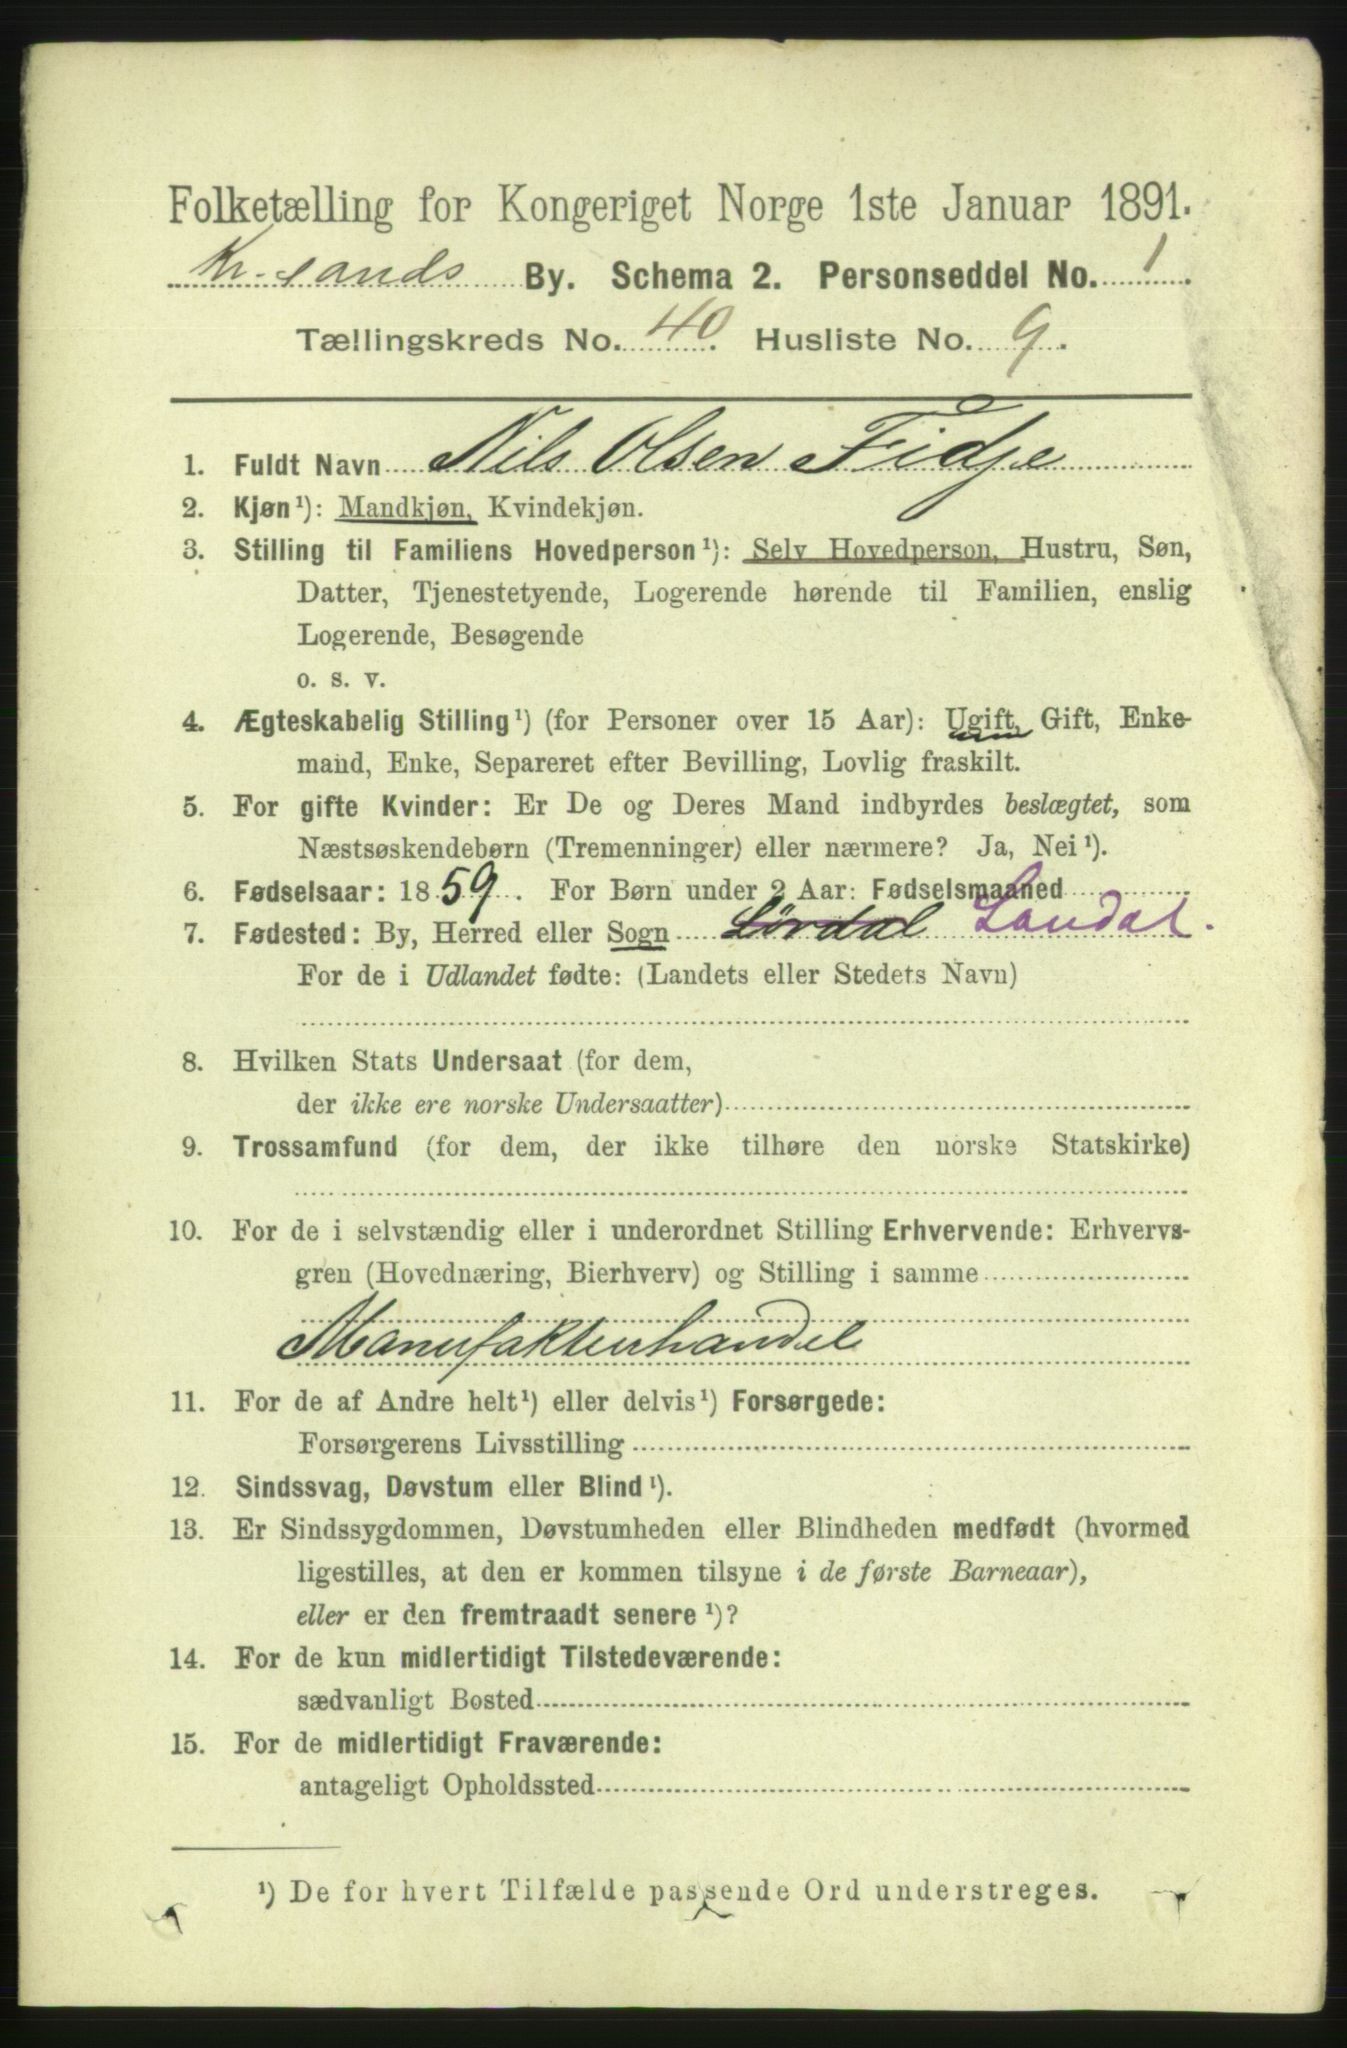 Folketælling for Kongeriget Norge 1ste Januar 1891.
Kr.sands By. Schema 2. Personseddel No. 1.
Tællingskreds No. 40. Husliste No. 9.
1. Fuldt Navn Nils Olsen Fidje
2. Kjøn¹): Mandkjøn, Kvindekjøn.
3. Stilling til Familiens Hovedperson¹): Selv Hovedperson, Hustru, Søn,
Datter, Tjenestetyende, Logerende hørende til Familien, enslig
Logerende, Besøgende
o. s. v.
4. Ægteskabelig Stilling¹) (for Personer over 15 Aar): Ugift, Gift, Enke-
mand, Enke, Separeret efter Bevilling, Lovlig fraskilt.
5. For gifte Kvinder: Er De og Deres Mand indbyrdes beslægtet, som
Næstsøskendebørn (Tremenninger) eller nærmere? Ja, Nei¹).
6. Fødselsaar: 1859. For Børn under 2 Aar: Fødselsmaaned
7. Fødested: By, Herred eller Sogn Lørdal Laudal.
For de i Udlandet fødte: (Landets eller Stedets Navn)
8. Hvilken Stats Undersaat (for dem,
der ikke ere norske Undersaatter)
9. Trossamfund (for dem, der ikke tilhøre den norske Statskirke)
10. For de i selvstændig eller i underordnet Stilling Erhvervende: Erhvervs-
gren (Hovednæring, Bierhverv) og Stilling i samme
Manufakturhandel
11. For de af Andre helt¹) eller delvis¹) Forsørgede:
Forsørgerens Livsstilling
12. Sindssvag, Døvstum eller Blind¹).
13. Er Sindssygdommen, Døvstumheden eller Blindheden medfødt (hvormed
ligestilles, at den er kommen tilsyne i de første Barneaar),
eller er den fremtraadt senere¹)?
14. For de kun midlertidigt Tilstedeværende:
sædvanligt Bosted
15. For de midlertidigt Fraværende:
antageligt Opholdssted
¹) De for hvert Tilfælde passende Ord understreges.